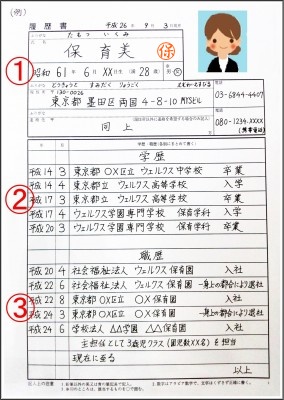 (例)
履歴書 平成26年9月3日現在
たもつ いくみ
保育美 保
昭和61年6月XX日生 (満28歳) 男・女
① 
とうきょうと すみだく りょうごく
〒130-0026
東京都 墨田区 両国 4-8-10 MYSビル
03-6844-4407
同上
080-1234-XXXX
学歴・職歴
学歴
平成14 3 東京都 OX区立 ウェルクス中学校 卒業
平成14 4 東京都立 ウェルクス高等学校 入学
②
平成17 3 東京都立 ウェルクス高等学校 卒業
平成17 4 ウェルクス学園専門学校 保育学科 入学
平成20 3 ウェルクス学園専門学校 保育学科 卒業
職歴
平成20 4 社会福祉法人 ウェルクス保育園 入社
平成22 6 社会福祉法人 ウェルクス保育園 一身上の都合により退社
③
平成22 8 東京都 OX区立 OX保育園 入社
平成24 3 東京都 OX区立 OX保育園 一身上の都合により退社
平成24 6 学校法人 △△学園 △△保育園 入社
主担任として3歳児クラス(園児数XX名)を担当
現在に至る
以上